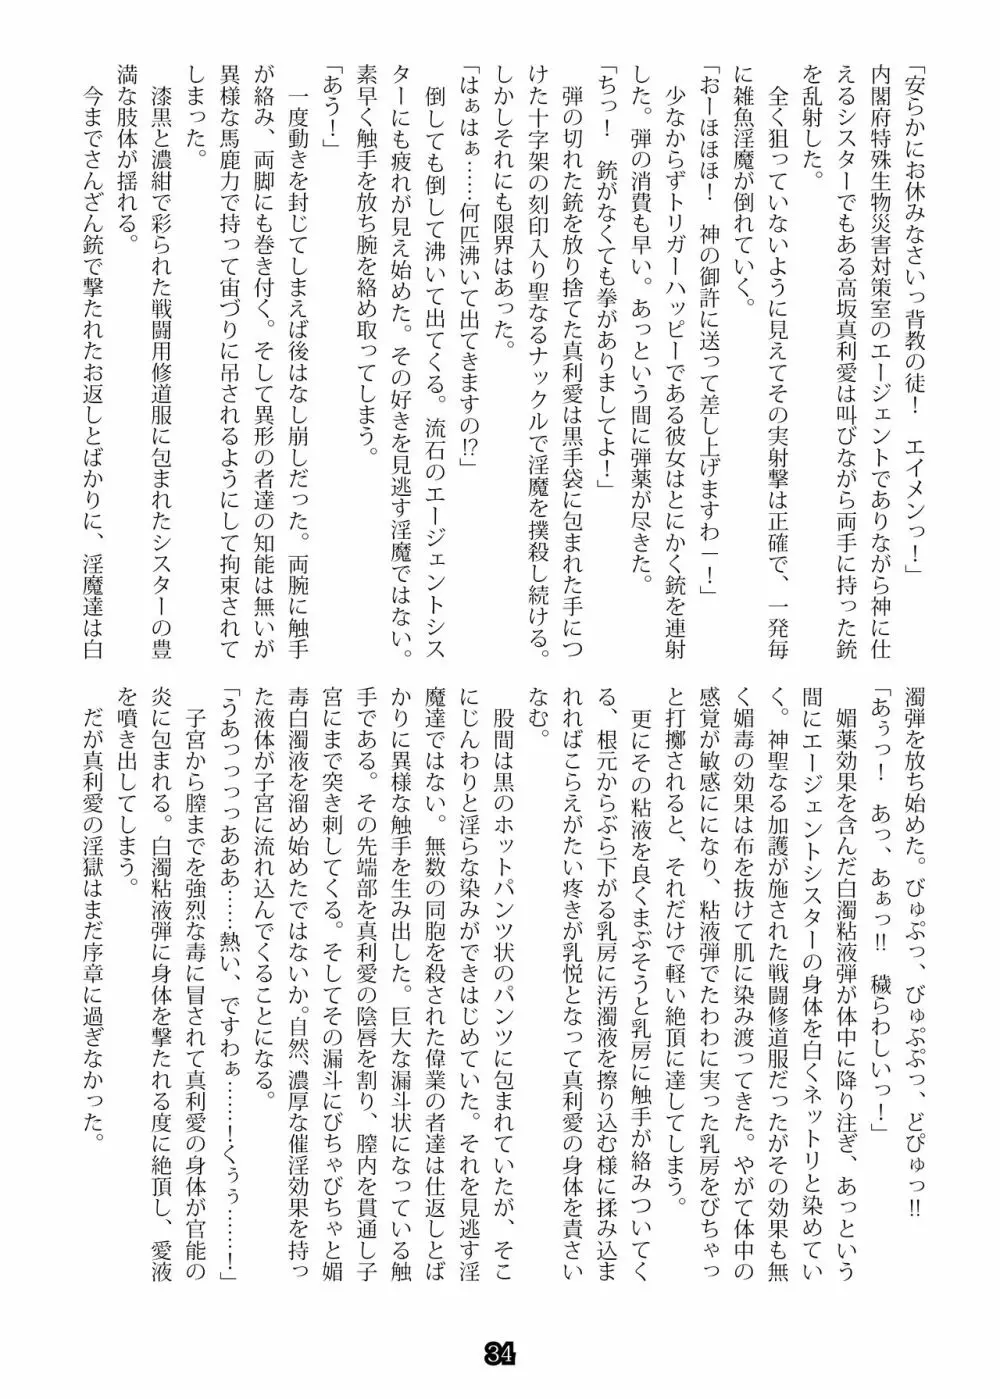 「安らかにお休みなさいっ背教の徒！　エイメンっ！」
内閣府特殊生物災害対策室のエージェントでありながら神に仕
えるシスターでもある高坂真利愛は叫びながら両手に持った銃
を乱射した。
　全く狙っていないように見えてその実射撃は正確で、一発毎
に雑魚淫魔が倒れていく。
「おーほほほ！　神の御許に送って差し上げますわー！」
　少なからずトリガーハッピーである彼女はとにかく銃を連射
した。弾の消費も早い。あっという間に弾薬が尽きた。
「ちっ！　銃がなくても拳がありましてよ！」
　弾の切れた銃を放り捨てた真利愛は黒手袋に包まれた手につ
けた十字架の刻印入り聖なるナックルで淫魔を撲殺し続ける。
しかしそれにも限界はあった。
「はぁはぁ……何匹沸いて出てきますの⁉」
　倒しても倒して沸いて出てくる。流石のエージェントシス
ターにも疲れが見え始めた。その好きを見逃す淫魔ではない。
素早く触手を放ち腕を絡め取ってしまう。
「あう！」
　一度動きを封じてしまえば後はなし崩しだった。両腕に触手
が絡み、両脚にも巻き付く。そして異形の者達の知能は無いが
異様な馬鹿力で持って宙づりに吊されるようにして拘束されて
しまった。
　漆黒と濃紺で彩られた戦闘用修道服に包まれたシスターの豊
満な肢体が揺れる。
　今までさんざん銃で撃たれたお返しとばかりに、淫魔達は白
濁弾を放ち始めた。びゅぷっ、びゅぷぷっ、どぴゅっ‼
「あぅっ！　あっ、あぁっ‼　穢らわしいっ！」
　媚薬効果を含んだ白濁粘液弾が体中に降り注ぎ、あっという
間にエージェントシスターの身体を白くネットリと染めてい
く。神聖なる加護が施された戦闘修道服だったがその効果も無
く媚毒の効果は布を抜けて肌に染み渡ってきた。やがて体中の
感覚が敏感にになり、粘液弾でたわわに実った乳房をびちゃっ
と打擲されると、それだけで軽い絶頂に達してしまう。
　更にその粘液を良くまぶそうと乳房に触手が絡みついてく
る、根元からぶら下がる乳房に汚濁液を擦り込む様に揉み込ま
れればこらえがたい疼きが乳悦となって真利愛の身体を責さい
なむ。
　股間は黒のホットパンツ状のパンツに包まれていたが、そこ
にじんわりと淫らな染みができはじめていた。それを見逃す淫
魔達ではない。無数の同胞を殺された偉業の者達は仕返しとば
かりに異様な触手を生み出した。巨大な漏斗状になっている触
手である。その先端部を真利愛の陰唇を割り、膣内を貫通し子
宮にまで突き刺してくる。そしてその漏斗にびちゃびちゃと媚
毒白濁液を溜め始めたではないか。自然、濃厚な催淫効果を持っ
た液体が子宮に流れ込んでくることになる。
「うあっっっっあああ……熱い、ですわぁ……！くぅぅ……！」
　子宮から膣までを強烈な毒に冒されて真利愛の身体が官能の
炎に包まれる。白濁粘液弾に身体を撃たれる度に絶頂し、愛液
を噴き出してしまう。
　だが真利愛の淫獄はまだ序章に過ぎなかった。
34